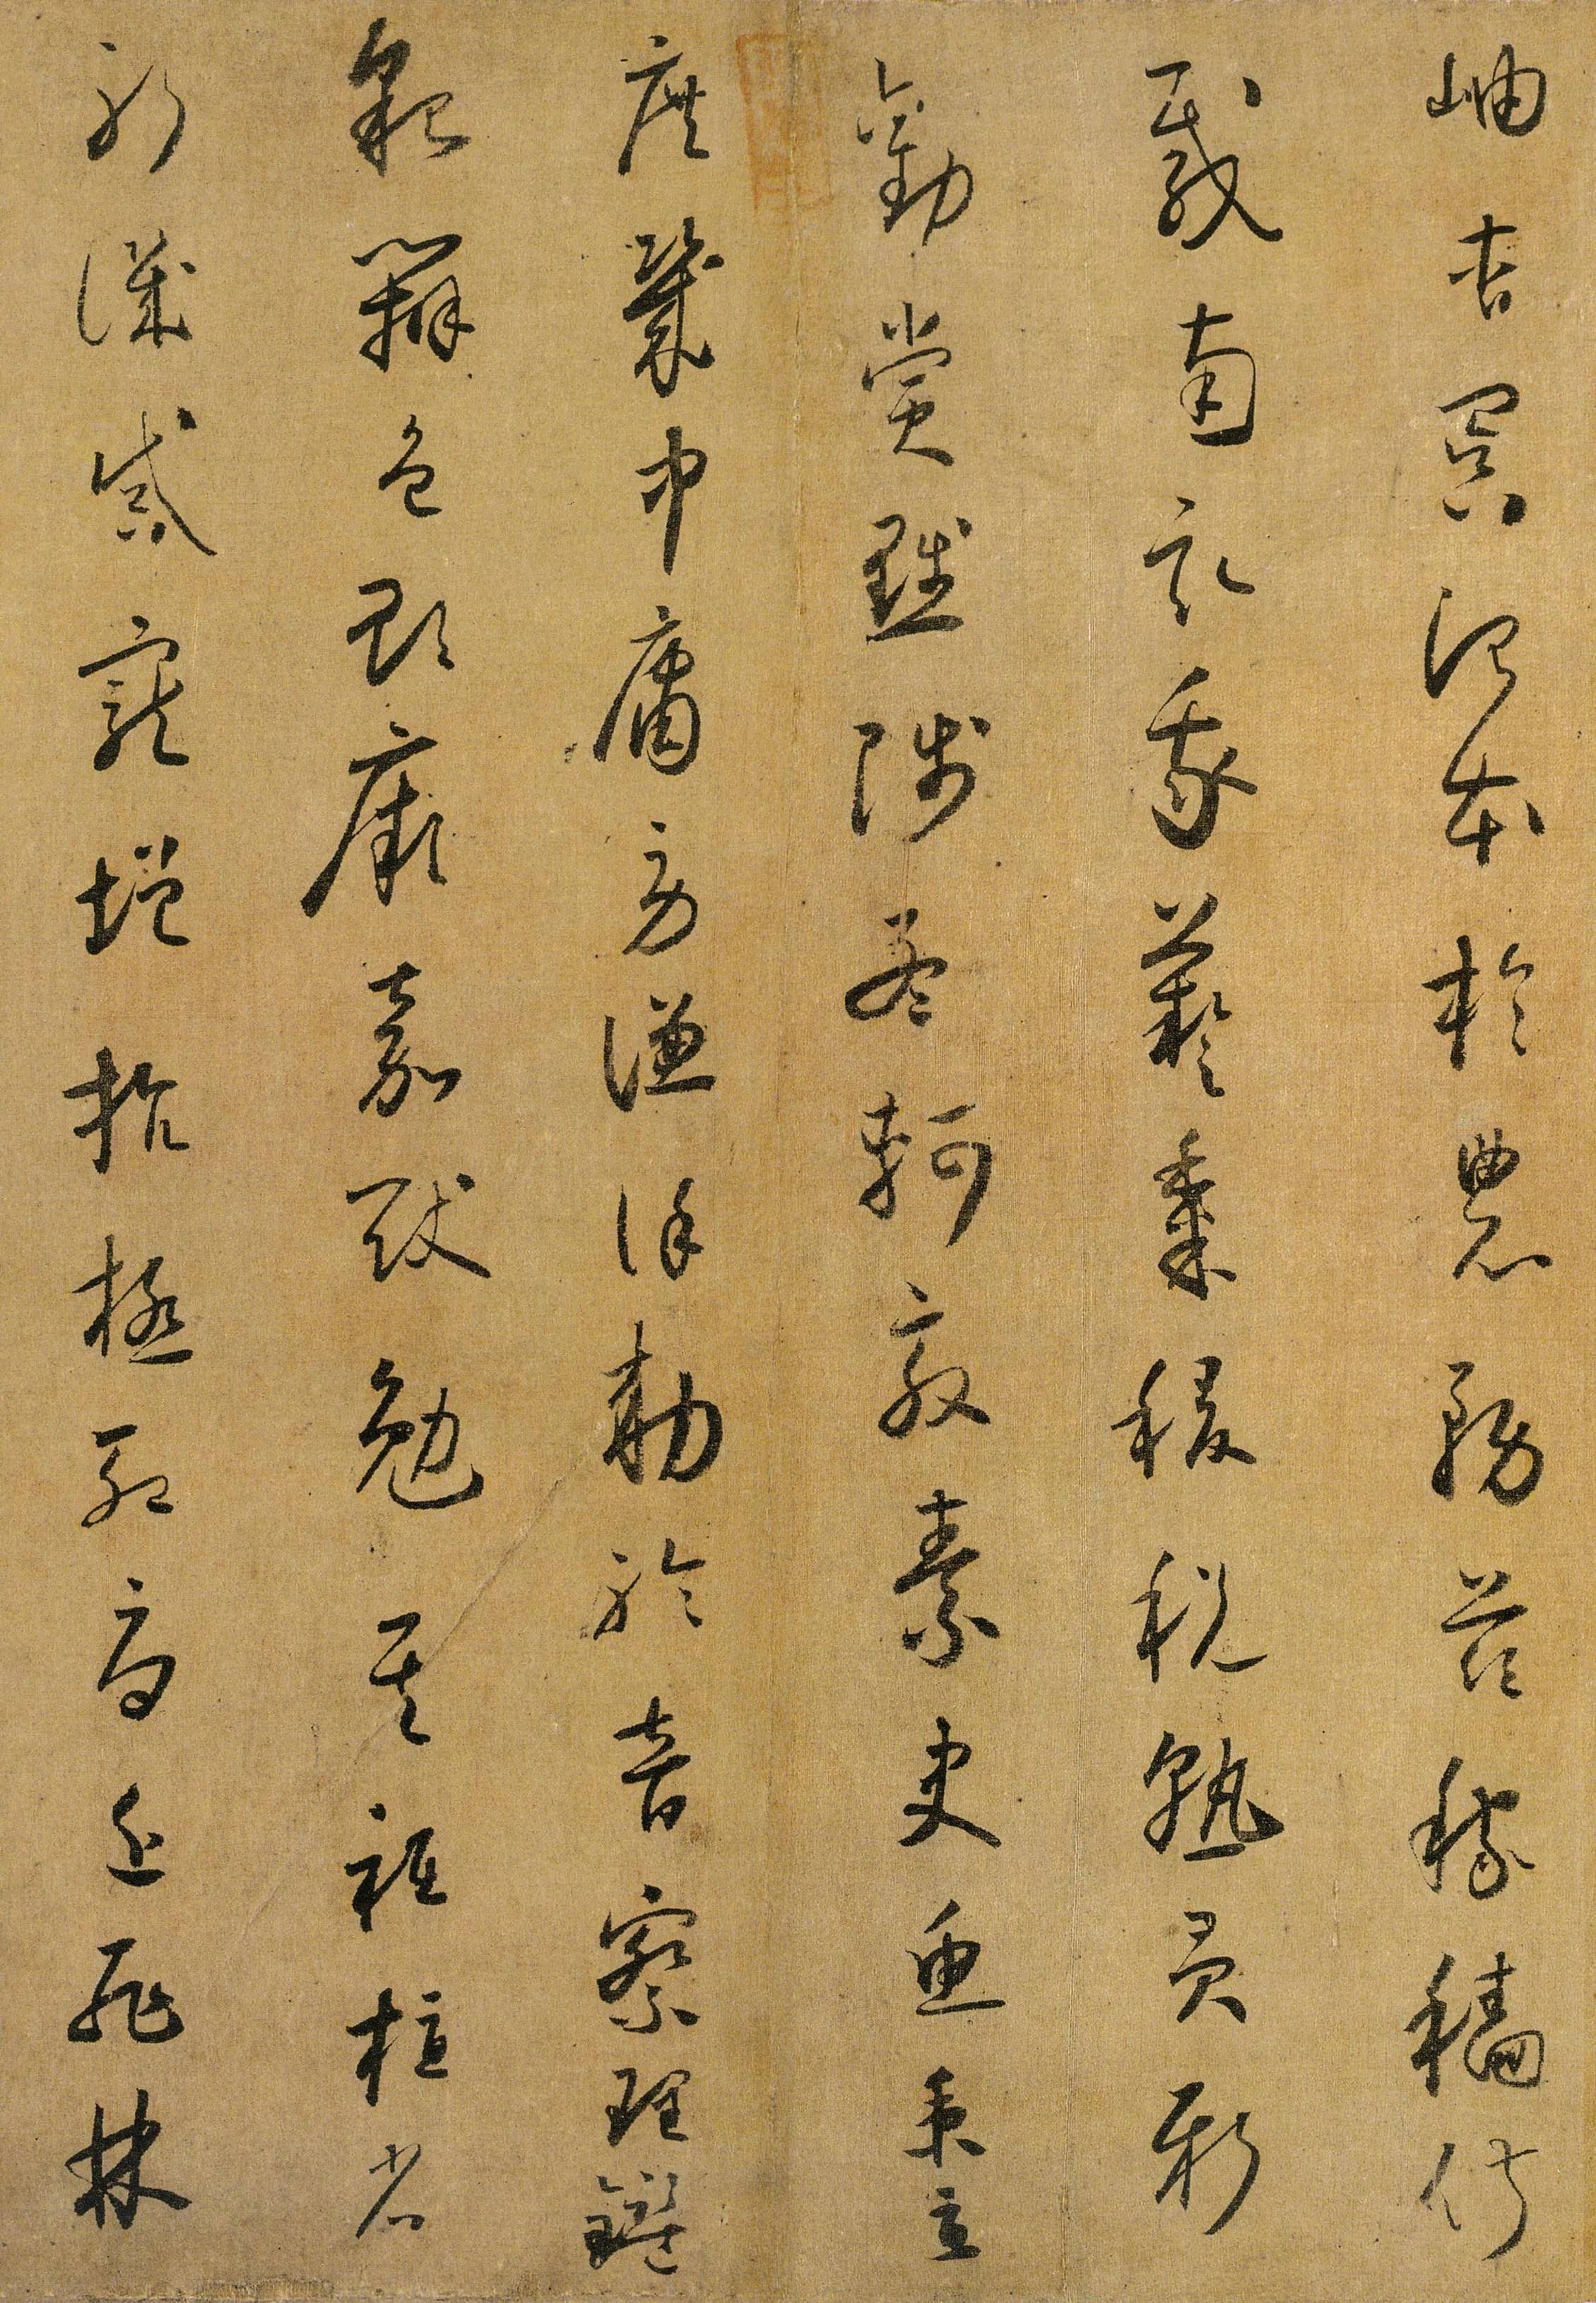 岫杳冥治本於農務茲稼穡俶
載南畝我藝黍稷稅熟貢新
勸賞黜陟孟軻敦素史魚秉直
庶幾中庸勞謙謹勑聆音察理鑑
貌辨色貽厥嘉猷勉其祗植省
躬譏誡寵增抗極殆辱近恥林